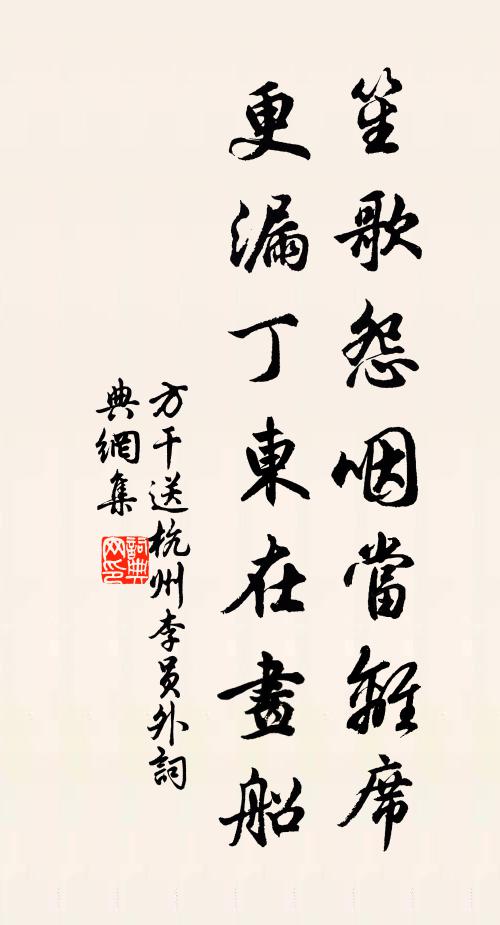 笙歌怨咽當離席
更漏丁東在畫船
方干送杭州李員外詞
典網集
詞典網印